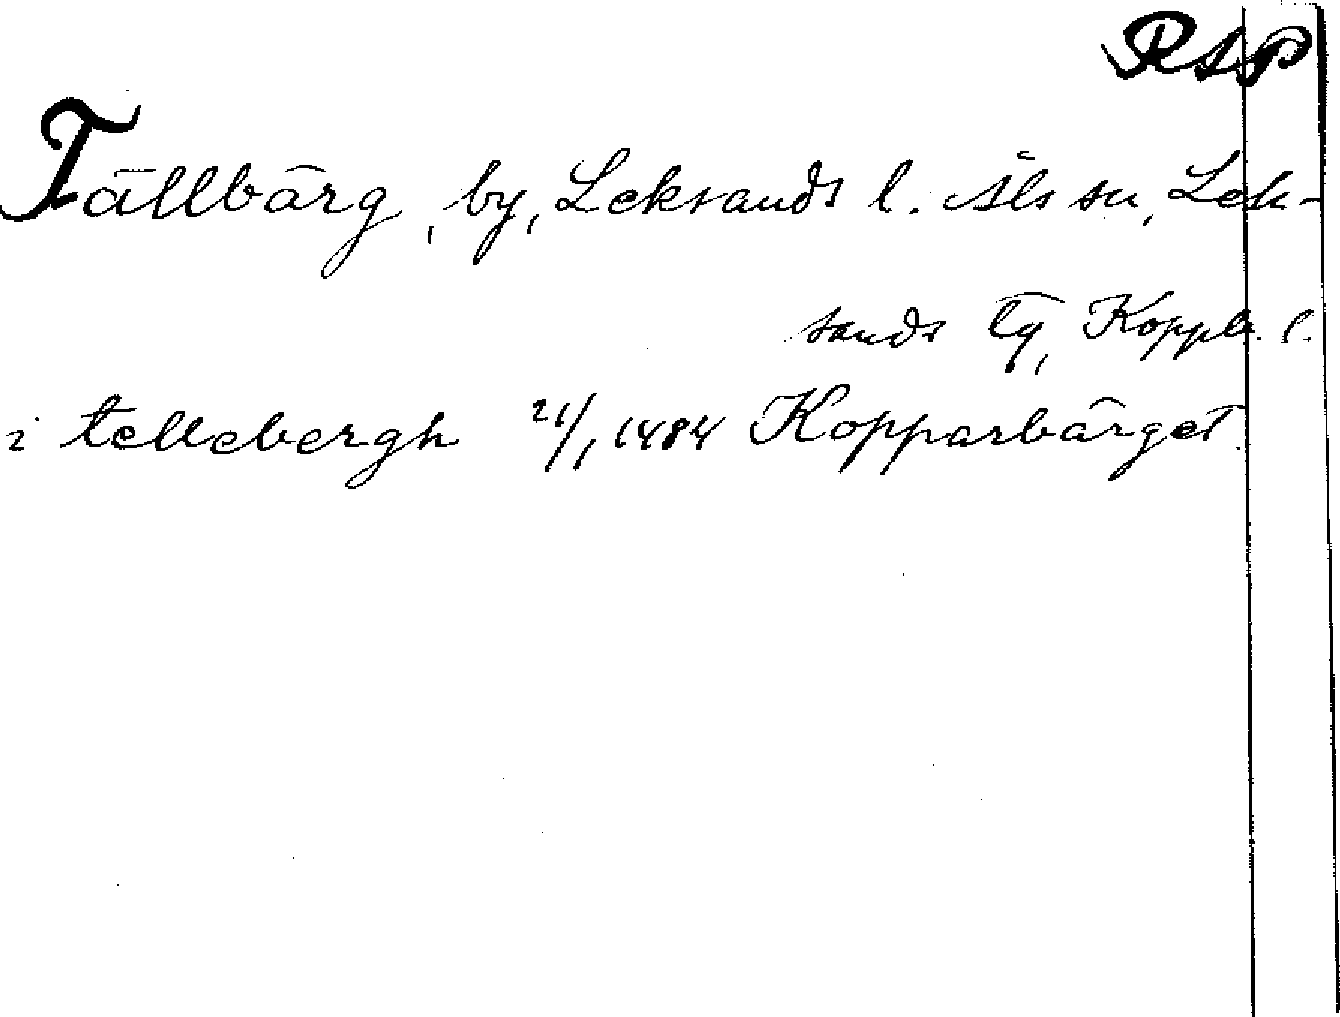 RAP
Tällbärg, by, Leksands l. Åls sn, Lek-
sands tg, Kopplr. l.
i tellebergh 21/1 1484 Kopparbärget.